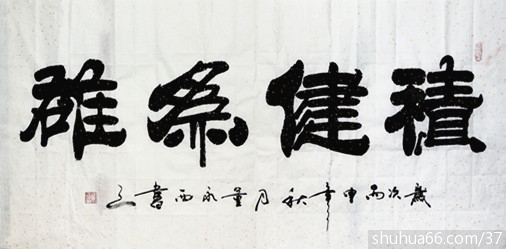 積健為雄
歲次丙申年秋月永西書之
shuhua66.com/37